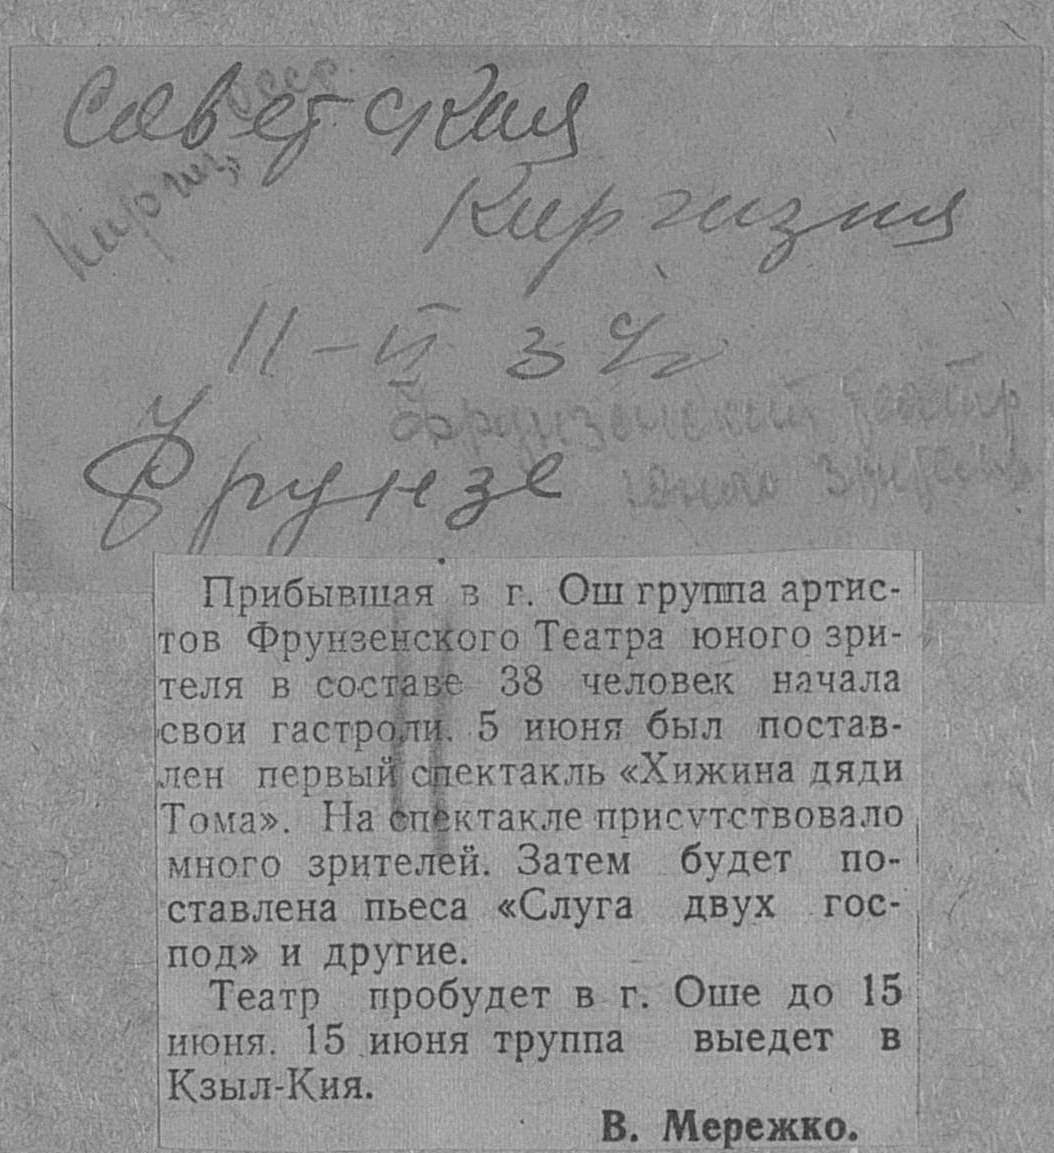 Советская
Киргиз. ССР.
Киргизия
11-VI 37
Фрунзе
Фрунзенский театр
юного зрителя
Прибывшая в г. Ош группа артис-
тов Фрунзенского Театра юного зри-
теля в составе 38 человек начала
свои гастроли. 5 июня был постав-
лен первый спектакль «Хижина дяди
Тома». На спектакле присутствовало
много зрителей. Затем будет по-
ставлена пьеса «Слуга двух гос-
под» и другие.
Театр пробудет в г. Оше до 15
июня. 15 июня труппа выедет в
Кзыл-Кия.
В. Мережко.